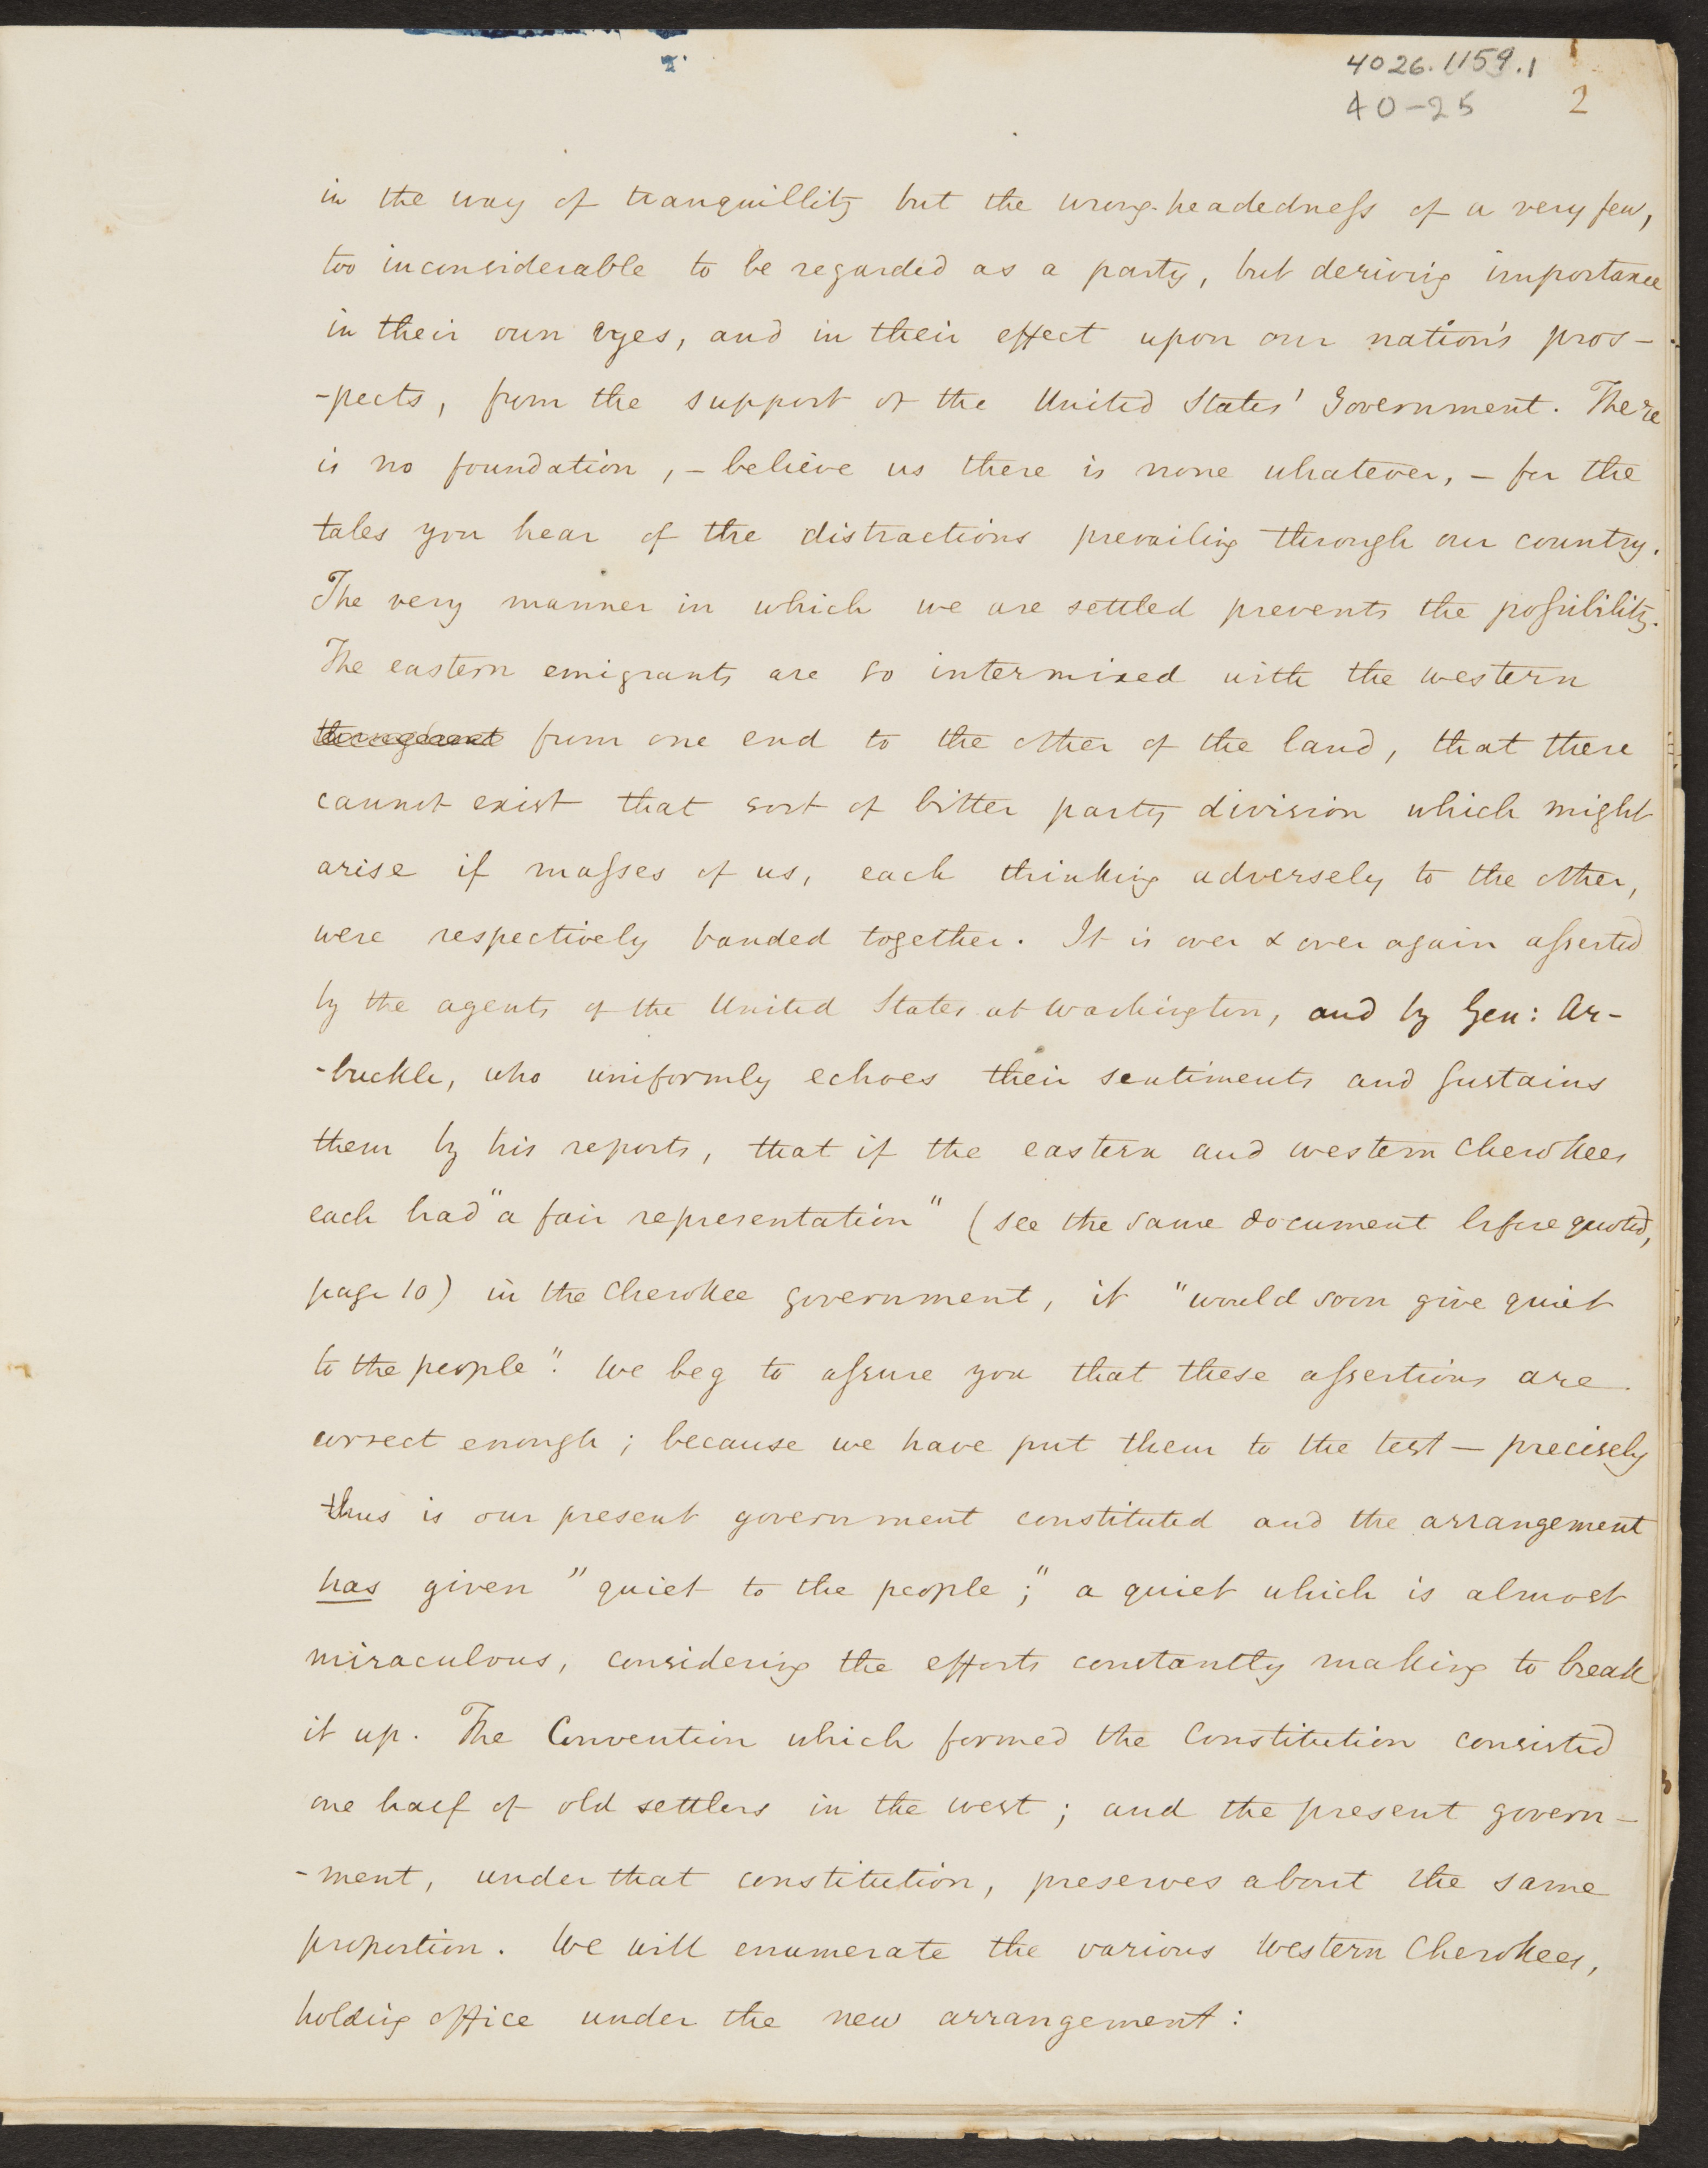 4026.1159.1
40-25 2
in the way of tranquillity but the wrong-headedness of a very few,
too inconsiderable to be regarded as a party, but deriving importance
in their own eyes, and in their effect upon our nation's pros-
-pects, from the support of the United States' Government. There
is no foundation, - believe us there is none whatever, - for the
tales you hear of the distractions prevailing through our country.
The very manner in which we are settled prevents the possibility.
The eastern emigrants are so intermixed with the western
throughout from one end to the other of the land, that there
cannot exist that sort of bitter party division which might
arise if masses of us, each thinking adversely to the other,
were respectively banded together. It is over & over again asserted
by the agents of the United States at Washington, and by Gen: Ar-
-buckle, who uniformly echoes their sentiments and sustains
them by his reports, that if the eastern and western Cherokees
each had "a fair representation" (see the same document before quoted,
page 10) in the Cherokee government, it "would soon give quiet
to the people". We beg to assure you that these assertions are
correct enough; because we have put them to the test — precisely
thus is our present government constituted and the arrangement
has given "quiet to the people;" a quiet which is almost
miraculous, considering the efforts constantly making to break
it up. The Convention which formed the Constitution consisted
one half of old settlers in the west; and the present govern-
-ment, under that constitution, preserves about the same
proportion. We will enumerate the various Western Cherokees,
holding office under the new arrangement: